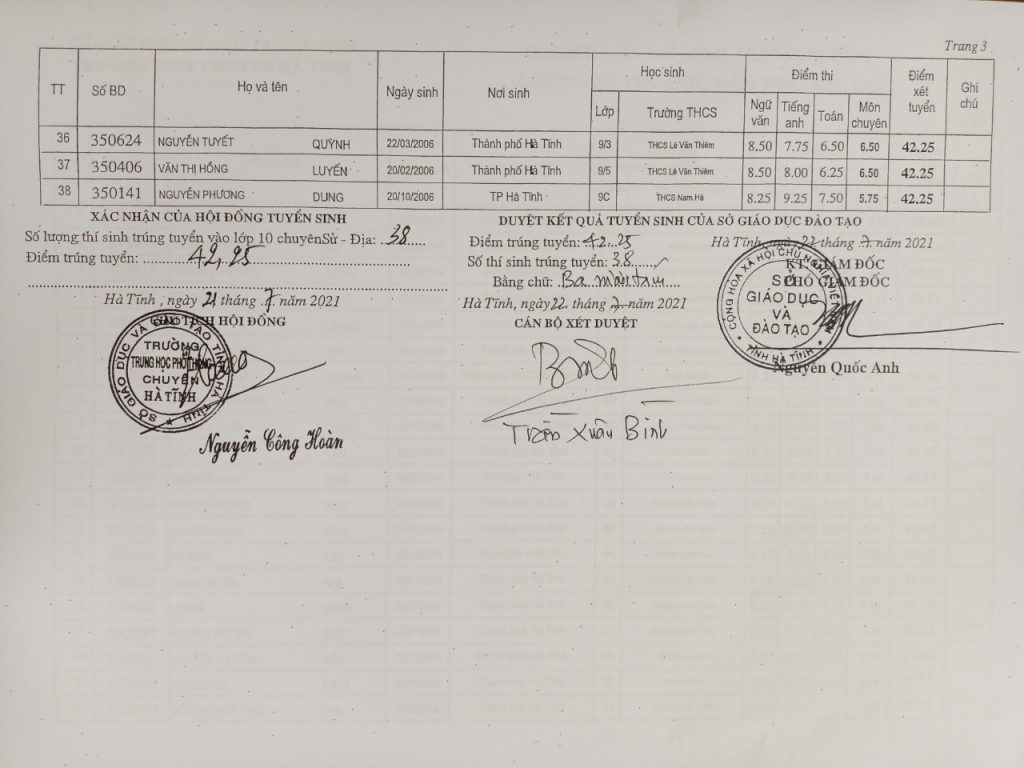 Trang 3
TT Số BD Họ và tên Ngày sinh Nơi sinh Học sinh Điểm thi Điểm xét tuyển Ghi chú
Lớp Trường THCS Ngữ văn Tiếng anh Toán Môn chuyên
36 350624 NGUYỄN TUYẾT QUỲNH 22/03/2006 Thành phố Hà Tĩnh 9/3 THCS Lê Văn Thiêm 8.50 7.75 6.50 6.50 42.25
37 350406 VĂN THỊ HỒNG LUYẾN 20/02/2006 Thành phố Hà Tĩnh 9/5 THCS Lê Văn Thiêm 8.50 8.00 6.25 6.50 42.25
38 350141 NGUYỄN PHƯƠNG DUNG 20/10/2006 TP Hà Tĩnh 9C THCS Nam Hà 8.25 9.25 7.50 5.75 42.25
XÁC NHẬN CỦA HỘI ĐỒNG TUYỂN SINH
Số lượng thí sinh trúng tuyển vào lớp 10 chuyênSử - Địa: 38
Điểm trúng tuyển: 42,25
Hà Tĩnh , ngày 21 tháng 7 năm 2021
CHỦ TỊCH HỘI ĐỒNG
SỞ GIÁO DỤC VÀ ĐÀO TẠO TỈNH HÀ TĨNH
TRƯỜNG
TRUNG HỌC PHỔ THÔNG
CHUYÊN
HÀ TĨNH
Nguyễn Công Hoàn
DUYỆT KẾT QUẢ TUYỂN SINH CỦA SỞ GIÁO DỤC ĐÀO TẠO
Điểm trúng tuyển: 42..25
Số thí sinh trúng tuyển: 38
Bằng chữ: Ba mươi tám
Hà Tĩnh, ngày 22 tháng 7 năm 2021
CÁN BỘ XÉT DUYỆT
Trần Xuân Bình
Hà Tĩnh, ngày 22 tháng 7 năm 2021
KT. GIÁM ĐỐC
PHÓ GIÁM ĐỐC
CỘNG HÒA XÃ HỘI CHỦ NGHĨA VIỆT NAM
SỞ
GIÁO DỤC
VÀ
ĐÀO TẠO
TỈNH HÀ TĨNH
Nguyễn Quốc Anh